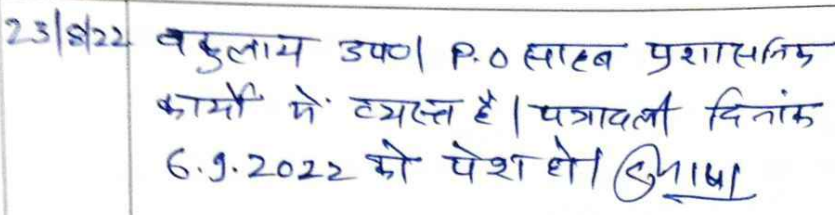 23/8/22 वकुलाय उप0। P.O साहब प्रशासनिक
कार्यों में व्यस्त है। पत्रावली दिनांक
6.9.2022 को पेश हो।